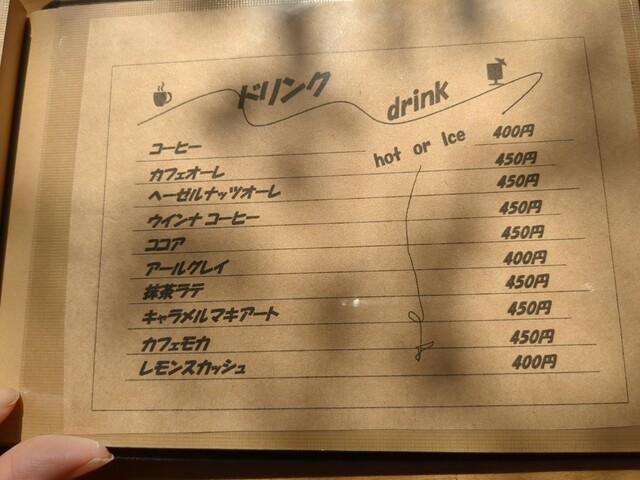 ドリンク drink
hot or Ice
コーヒー 400円
カフェオーレ 450円
ヘーゼルナッツオーレ 450円
ウインナコーヒー 450円
ココア 450円
アールグレイ 400円
抹茶ラテ 450円
キャラメルマキアート 450円
カフェモカ 450円
レモンスカッシュ 400円